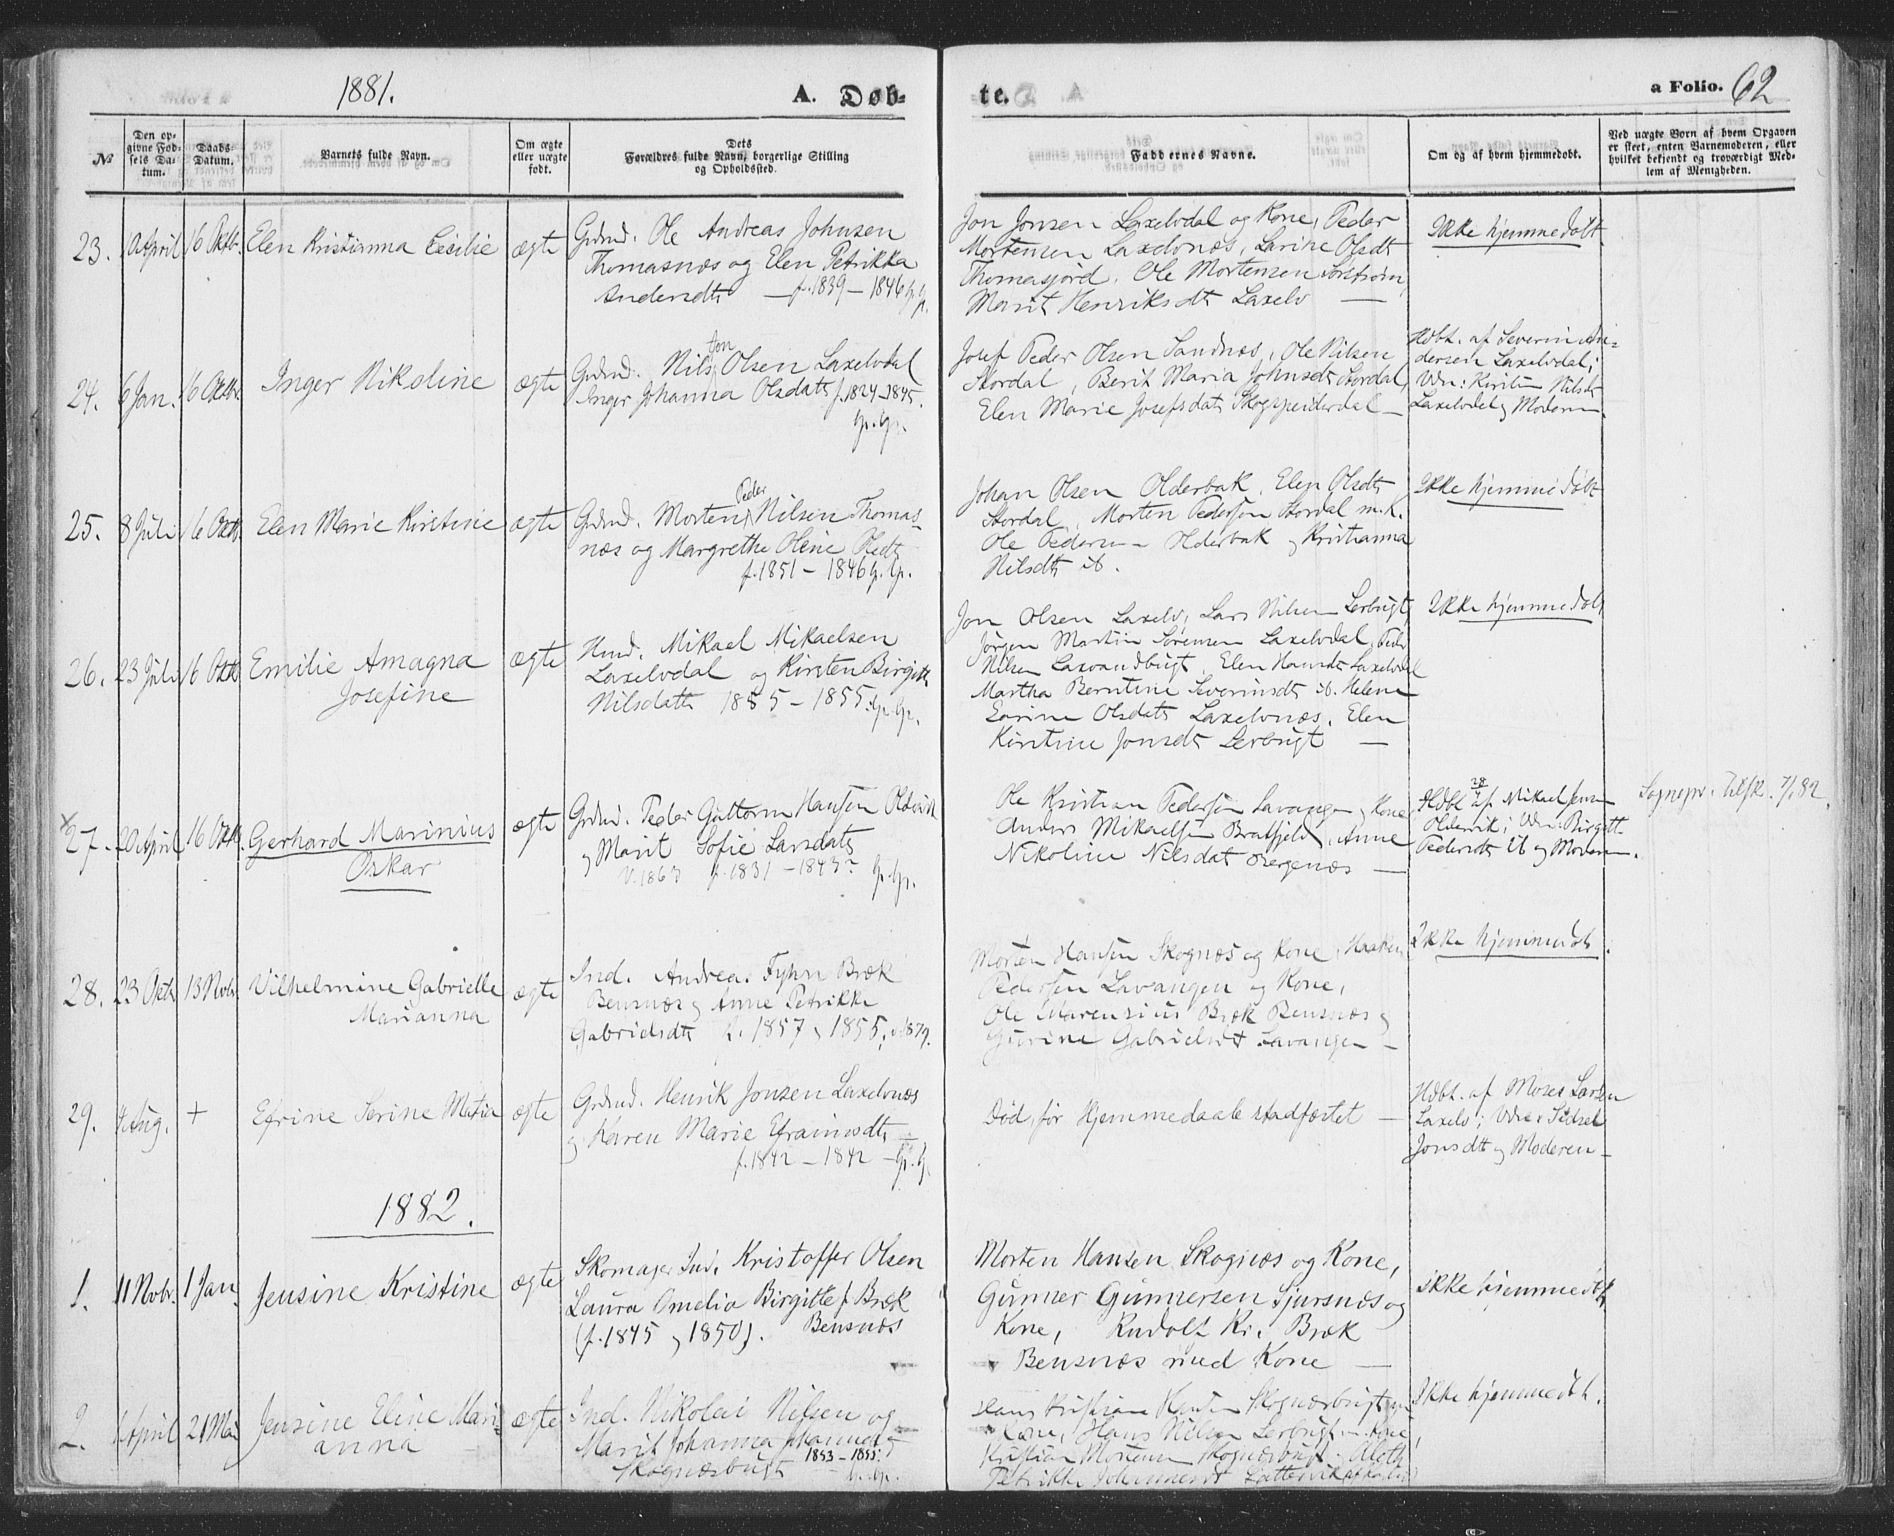 1881.
A. Døb-
te.
a Folio. 62
№
Den op-
givne Fød-
sels Da-
tum.
Daabs-
Datum.
Barnets fulde Navn.
Om ægte
eller uægte
født.
Dets
Forældres fulde Navn, borgerlige Stilling
og Opholdssted.
Faddernes Navne.
Om og af hvem hjemmedøbt.
Ved uægte Børn af hvem Opgaven
er skeet, enten Barnemoderen, eller
hvilket bekjendt og troværdigt Med-
lem af Menigheden.
23. 1 April 16 Oktb. Elen Kristianna Cecilie ægte
Grdmd. Ole Andreas Johnsen
Thomasnæs og Elen Petrikka
Andersdtr — f. 1839 — 1846
Jon Jonsen Laxelvdal og Kone, Peder
Mortensen Laxelvnæs, Larine Olsdt
Thomasjord, Ole Mortensen
Marit Henriksdtr Laxelv —
Ikke hjemmedøbt
24. 6 Jan. 16 Oktbr. Inger Nikoline ægte
Grdmd. Nils Jon Olsen Laxelvdal
Inger Johanna Olsdatr f. 1824 - 1845.
gr. gr.
Josef Peder Olsen Sandnæs, Ole Nilsen
Stordal, Berit Maria Johnsdtr Stordal,
Elen Marie Josefsdatr —
Hdbt. af Severin An-
dersen Laxelvdal;
Vdn: Kirstin Nilsdtr
Laxelvdal og Moderen.
25. 8 Juli 16 Oktb. Elen Marie Kirstine ægte
Grdmd. Morten Peder Nilsen Thomas-
næs og Margrethe Oline Olsdtr
f. 1851 — 1846 gr. gr.
Johan Olsen Olderbak, Elen Olsdtr
Stordal, Morten Pedersen Stordal m. K.
Ole Pedersen Olderbak og Kristianna
Nilsdtr ib.
Ikke hjemmedøbt
26. 23 Juli 16 Oktb Emilie Amagna
Josefine ægte
Hmd. Mikael Mikaelsen
Laxelvdal og Kirsten Birgitte
Nilsdatr 1855 — 1855. gr. gr.
Jon Olsen Laxelv, Lars Nilsen Lerbugt,
Jørgen Martin Sørensen Laxelvdal, Peder
Nilsen Laxvandbugt, Elen Hansdtr Laxelvdal
Martha Berntine Severinsdtr ib. Helene
Sarine Olsdatr Laxelvnæs, Elen
Kirstine Jonsdtr Lerbugt —
Ikke hjemmedøbt
27. 20 April 16 Oktb. Gerhard Marinius
Oskar ægte
Grdmd. Peder Guttorm Hansen
og Marit Sofie Larsdatr
V. 1863 f. 1831 — 1843 gr. gr.
Ole Kristian Pedersen Lavangen og Kone
Anders Mikaelsen Bratfjeld, Anne
Nikoline Nilsdat —
Hdbt af Mikael Jensen
Vdn: Birgitte
Pedersdtr ib og Moderen.
Sognepr. 7/82.
28. 23 Oktb 13 Novbr Vilhelmine Gabrielle
Marianna ægte
Ind. Andreas Fyhn Bræk
Bensnæs og Anne Petrikke
Gabrielsdtr f. 1857 og 1855, v. 1879.
Morten Hansen Skognæs og Kone, Haaken
Pedersen Lavangen og Kone,
Ole Bræk Bensnæs og
Gabrielsdt Lavangen —
Ikke hjemmedøbt.
29. 4 Aug. + Efrine Serine Matea ægte
Grdmd. Henrik Jonsen Laxelvnæs
og Karen Marie Efraimsdtr —
f. 1842 — 1842 — gr. gr.
Død før Hjemmedaab stadfæstet —
Hdbt. af Moses Larsen
Laxelv; Vdn: Sidsel
Jonsdtr og Moderen —
1882.
1. 11 Novbr. 1 Jan. Jensine Kristine ægte
Skomager Ind. Kristoffer Olsen
Laura Omelia Birgitte f. Bræk
(f. 1845 og 1850). Bensnæs
Morten Hansen Skognæs og Kone,
Gunner Gunnersen Sjursnæs og
Kone, Rudolf Kr. Bræk
Bensnæs med Kone —
Ikke hjemmedøbt
2. 1 April 21 Mai Jensine Eline Mari-
anna ægte
Ind. Nikolai Nilsen og
Marit Johanna
Skognæsbugt 1853 — 1855.
Hans Kristian Hansen Skognæsbugt
Kone, Hans Nilsen Lerbugt Kone,
Kristian Mortensen Skognæsbugt
Petrikke
Ikke hjemmedøbt.